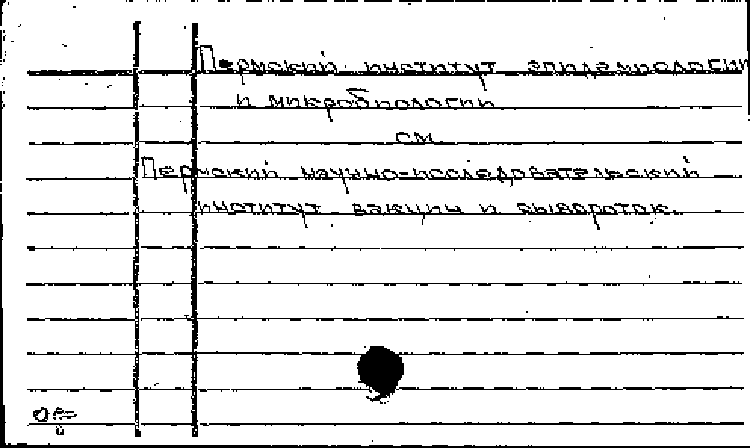 Пермский институт эпидемиологии
и микробиологии
см.
Пермский научно-исследовательский
институт вакцин и сывороток.